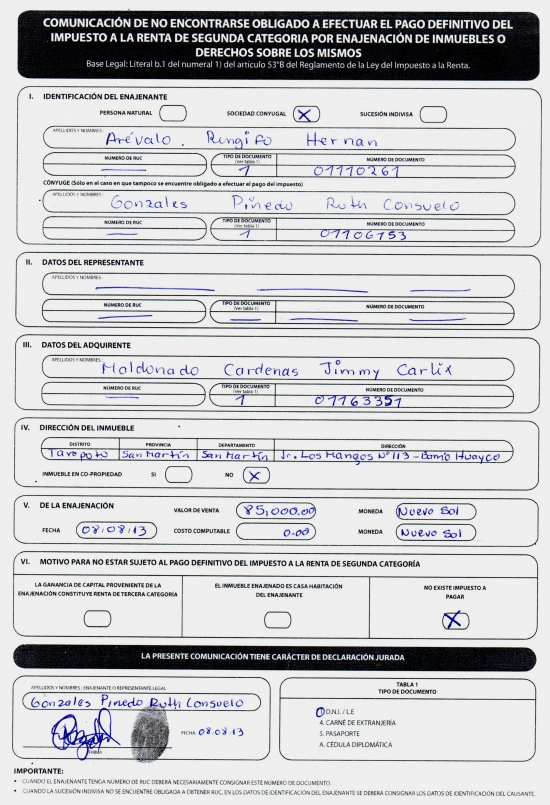 COMUNICACIÓN DE NO ENCONTRARSE OBLIGADO A EFECTUAR EL PAGO DEFINITIVO DEL
IMPUESTO A LA RENTA DE SEGUNDA CATEGORIA POR ENAJENACIÓN DE INMUEBLES O
DERECHOS SOBRE LOS MISMOS
Base Legal: Literal b.1 del numeral 1) del artículo 53°B del Reglamento de la Ley del Impuesto a la Renta.
I. IDENTIFICACIÓN DEL ENAJENANTE
PERSONA NATURAL SOCIEDAD CONYUGAL X SUCESIÓN INDIVISA
APELLIDOS Y NOMBRES :
Arévalo Rengifo Hernan
NÚMERO DE RUC TIPO DE DOCUMENTO NÚMERO DE DOCUMENTO
(Ver tabla 1)
— 1 01110261
CÓNYUGE (Sólo en el caso en que tampoco se encuentre obligado a efectuar el pago del impuesto)
APELLIDOS Y NOMBRES :
Gonzales Pinedo Ruth Consuelo
NÚMERO DE RUC TIPO DE DOCUMENTO NÚMERO DE DOCUMENTO
(Ver tabla 1)
— 1 01106753
II. DATOS DEL REPRESENTANTE
APELLIDOS Y NOMBRES :
— — —
NÚMERO DE RUC TIPO DE DOCUMENTO NÚMERO DE DOCUMENTO
(Ver tabla 1)
— — — —
III. DATOS DEL ADQUIRENTE
APELLIDOS Y NOMBRES :
Maldonado Cardenas Jimmy Carlix
NÚMERO DE RUC TIPO DE DOCUMENTO NÚMERO DE DOCUMENTO
(Ver tabla 1)
— 1 01163351
IV. DIRECCIÓN DEL INMUEBLE
DISTRITO PROVINCIA DEPARTAMENTO DIRECCIÓN
Tarapoto San Martín San Martín Jr. Los Mangos N° 113 - Barrio Huayco
INMUEBLE EN CO-PROPIEDAD SI NO X
V. DE LA ENAJENACIÓN VALOR DE VENTA 85,000.00 MONEDA Nuevo Sol
FECHA 08.08.13 COSTO COMPUTABLE 0.00 MONEDA Nuevo Sol
VI. MOTIVO PARA NO ESTAR SUJETO AL PAGO DEFINITIVO DEL IMPUESTO A LA RENTA DE SEGUNDA CATEGORÍA
LA GANANCIA DE CAPITAL PROVENIENTE DE LA EL INMUEBLE ENAJENADO ES CASA HABITACIÓN NO EXISTE IMPUESTO A
ENAJENACIÓN CONSTITUYE RENTA DE TERCERA CATEGORÍA DEL ENAJENANTE PAGAR
X
LA PRESENTE COMUNICACIÓN TIENE CARÁCTER DE DECLARACIÓN JURADA
APELLIDOS Y NOMBRES : ENAJENANTE O REPRESENTANTE LEGAL
Gonzales Pinedo Ruth Consuelo
FECHA: 08.08.13
FIRMA
TABLA 1
TIPO DE DOCUMENTO
1 D.N.I. / L.E
4. CARNÉ DE EXTRANJERÍA
5. PASAPORTE
A. CÉDULA DIPLOMÁTICA
IMPORTANTE:
• CUANDO EL ENAJENANTE TENGA NÚMERO DE RUC DEBERÁ NECESARIAMENTE CONSIGNAR ESTE NÚMERO DE DOCUMENTO.
• CUANDO LA SUCESIÓN INDIVISA NO SE ENCUENTRE OBLIGADO A OBTENER RUC, EN LOS DATOS DE IDENTIFICACIÓN DEL ENAJENANTE SE DEBERÁ CONSIGNAR LOS DATOS DE IDENTIFICACIÓN DEL CAUSANTE.